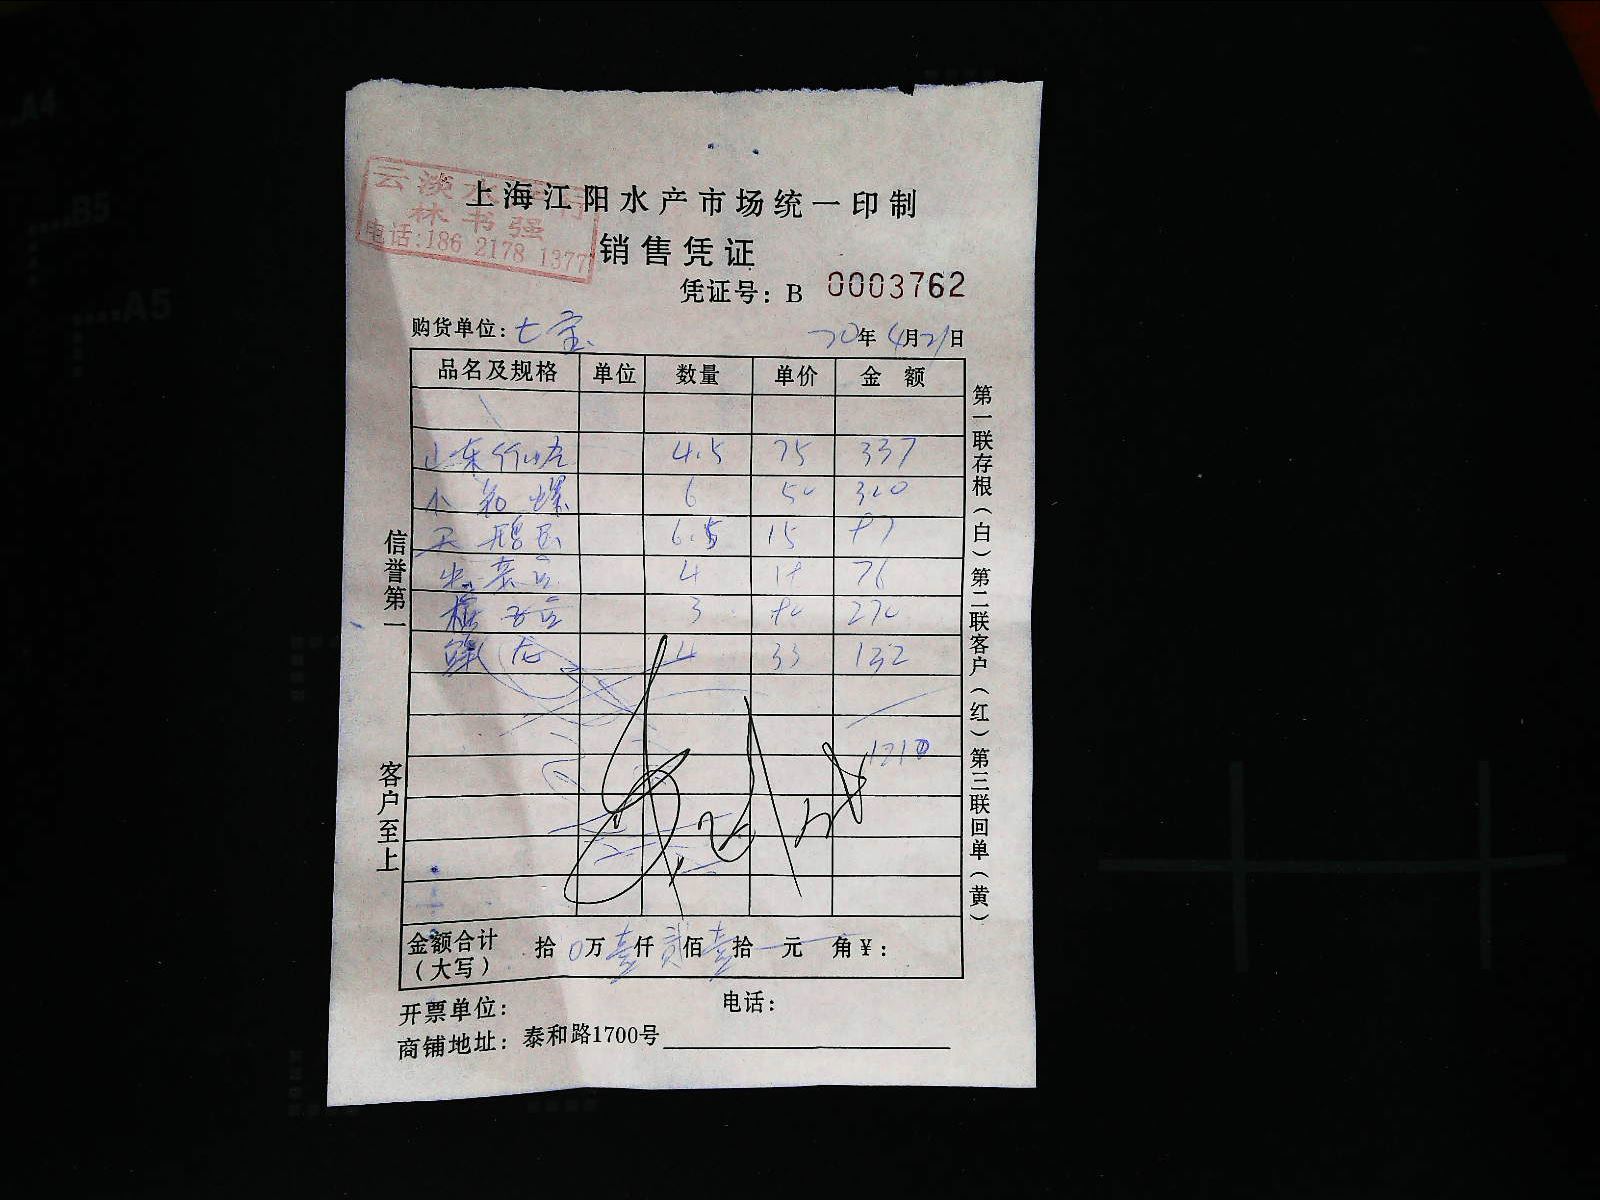 上海江阳水产市场统一印制
云淡水
林书强
电话:186 2178 1377
销售凭证
凭证号: B 0003762
购货单位: 七宝 20年4月21日
品名及规格 单位 数量 单价 金额
山东 4.5 75 337
小 螺 6 50
天鹅 6.5 15
4 76
3 270
龙 4 33 132
1210
金额合计(大写) 拾 0万壹仟贰佰壹拾 元 角¥:
开票单位: 电话:
商铺地址: 泰和路1700号
信誉第一 客户至上
第一联存根(白)第二联客户(红)第三联回单(黄)
A4
B5
A5